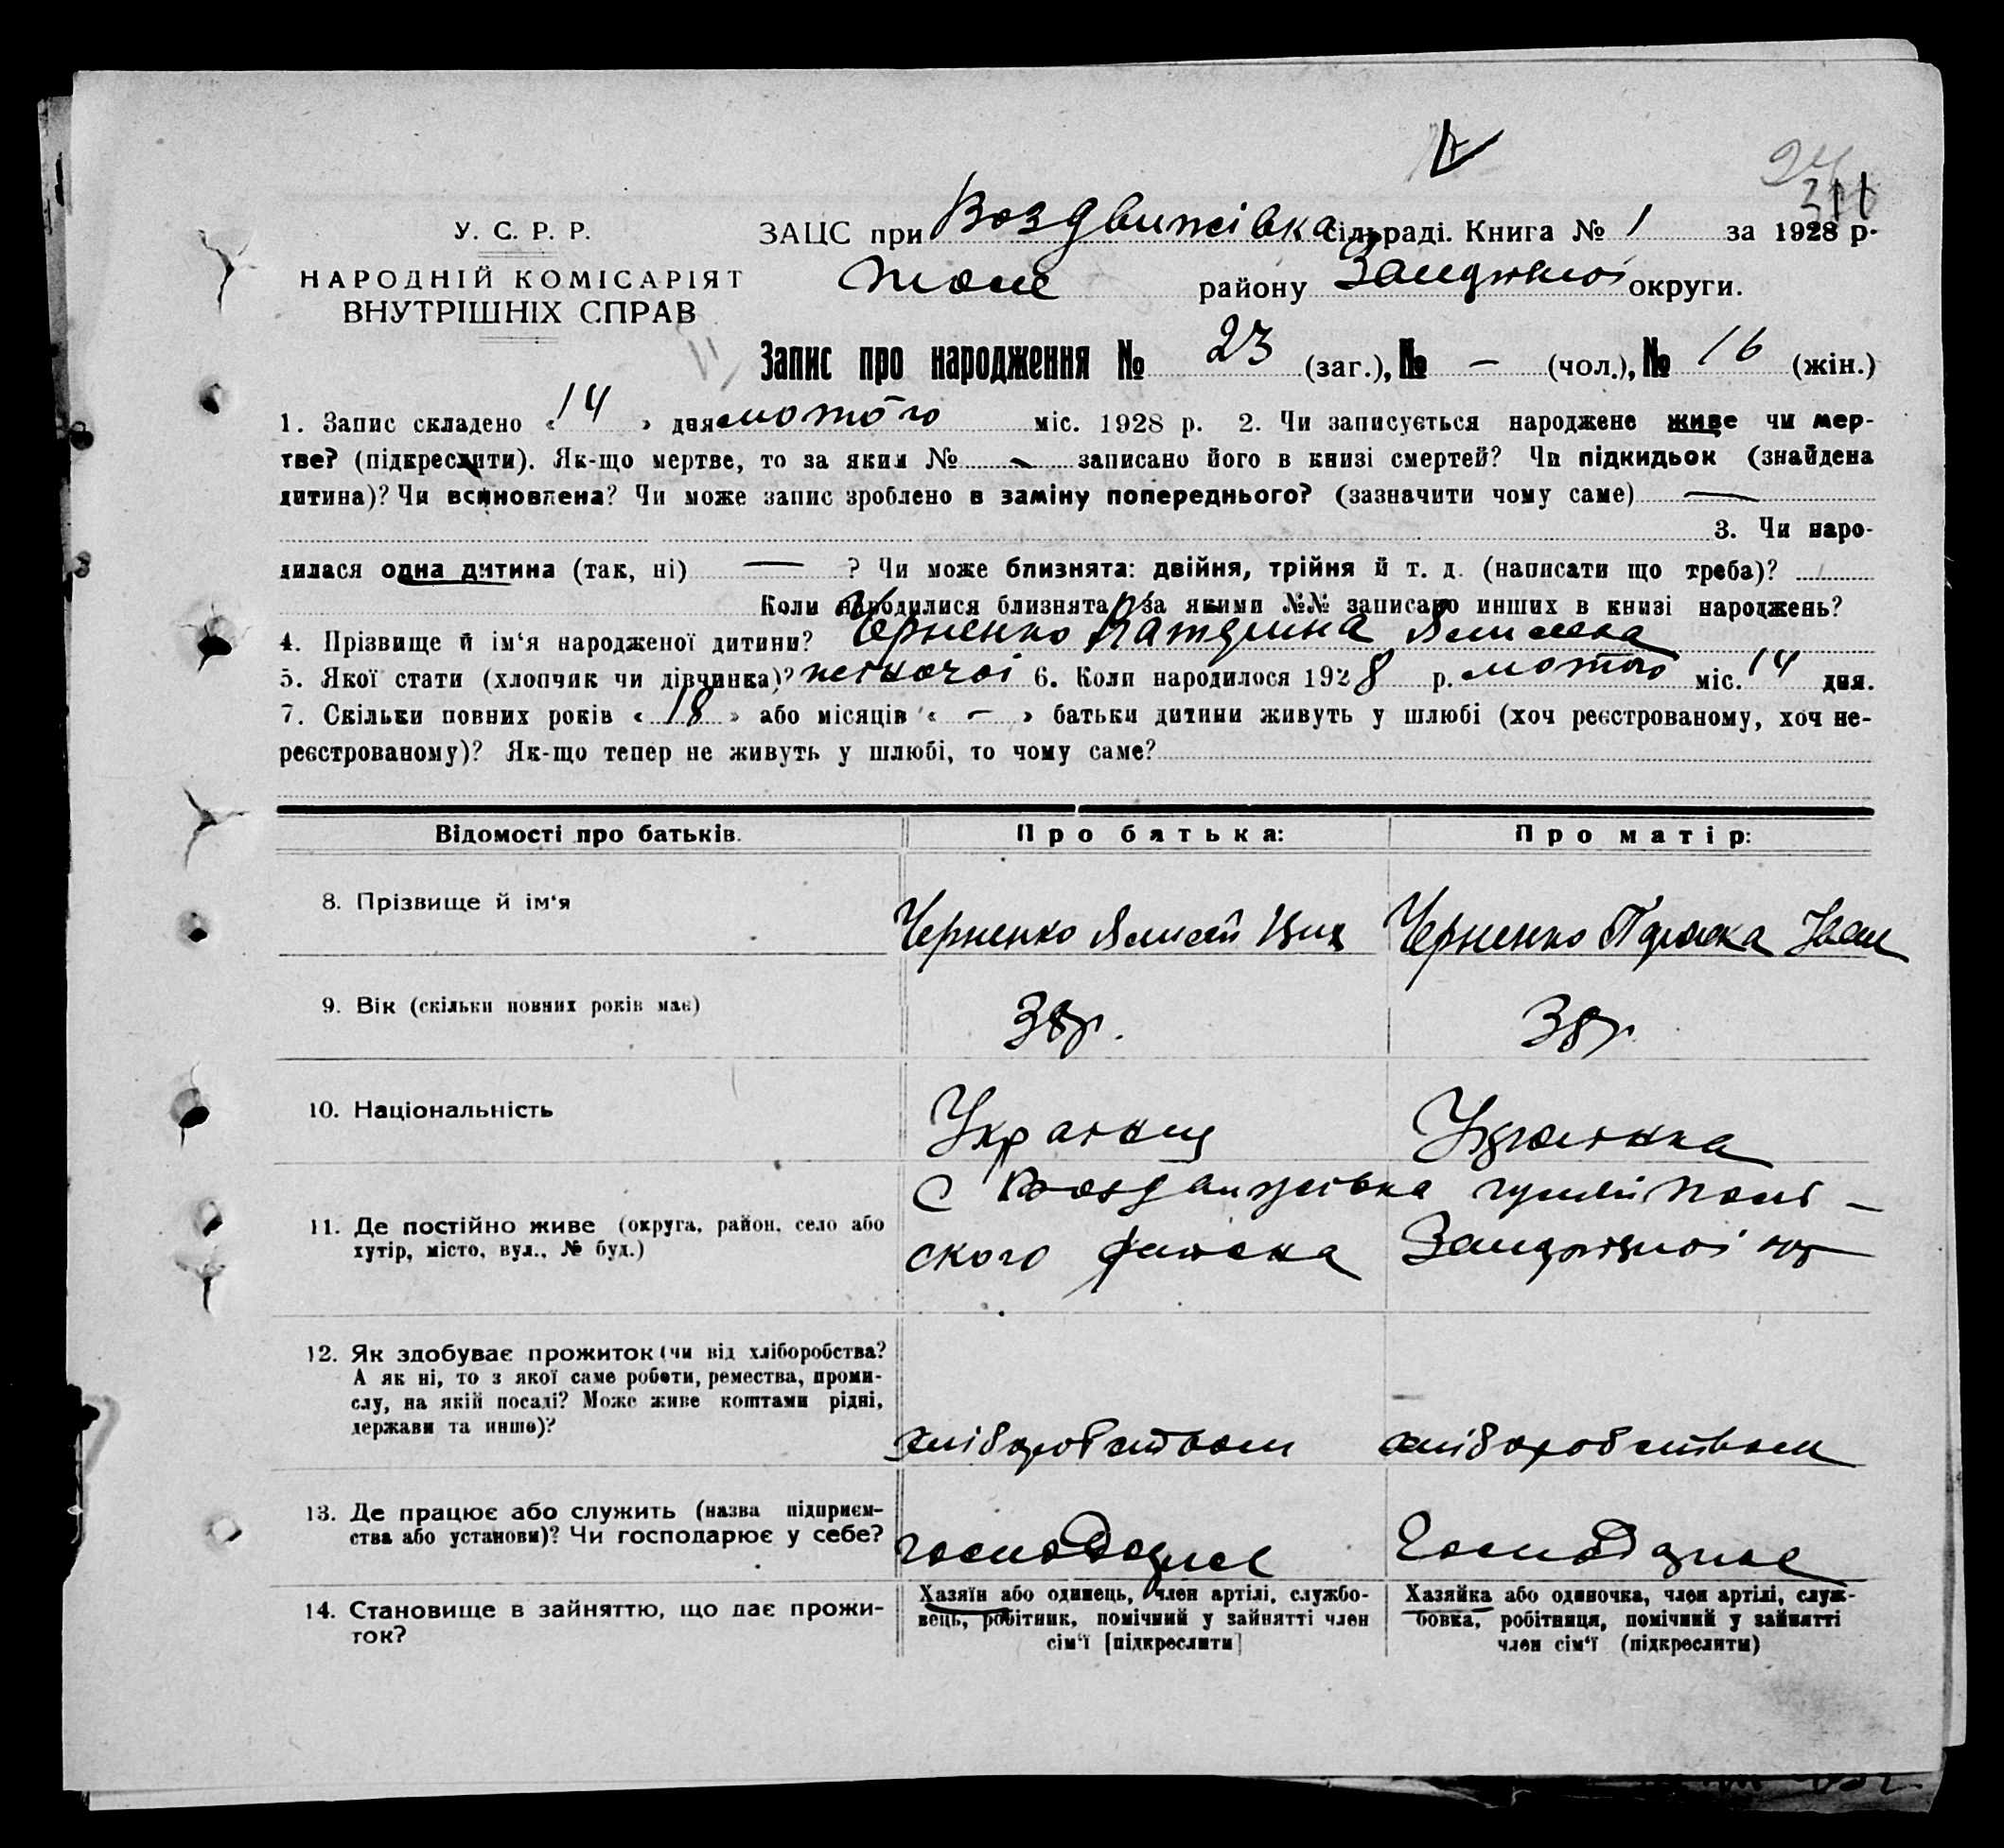 У. С. Р. Р.
НАРОДНІЙ КОМІСАРІЯТ
ВНУТРІШНІХ СПРАВ
ЗАЦС при Воздвижівка сільраді. Книга № 1 за 1928 р.
району округи.
Запис про народження № 23 (заг.), № — (чол.), № 16 (жін.)
1. Запис складено « 14 » дня лютого міс. 1928 р. 2. Чи записується народжене живе чи мер-
тве? (підкреслити). Як-що мертве, то за яким № — записано його в книзі смертей? Чи підкидьок (знайдена
дитина)? Чи всиновлена? Чи може запис зроблено в заміну попереднього? (зазначити чому саме) —
3. Чи наро-
дилася одна дитина (так, ні) — ? Чи може близнята: двійня, трійня й т. д. (написати що треба)?
Коли народилися близнята, за якими №№ записано инших в книзі народжень?
4. Прізвище й ім‘я народженої дитини? Черненко
5. Якої стати (хлопчик чи дівчинка)? жіночої 6. Коли народилося 1928 р. лютого міс. 14 дня.
7. Скільки повних років « 18 » або місяців « — » батьки дитини живуть у шлюбі (хоч реєстрованому, хоч не-
реєстрованому)? Як-що тепер не живуть у шлюбі, то чому саме?
Відомості про батьків. Про батька: Про матір:
8. Прізвище й ім‘я Черненко Черненко Іван
9. Вік (скільки повних років має) 38 р. 38 р.
10. Національність Українец Українка
11. Де постійно живе (округа, район, село або
хутір, місто, вул., № буд.)
с Воздвижівка гуляйполь—
ского района
12. Як здобуває прожиток (чи від хліборобства?
А як ні, то з якої саме роботи, ремества, проми-
слу, на якій посаді? Може живе коштами рідні,
держави та инше)?
хліборобством хліборобством
13. Де працює або служить (назва підприєм-
ства або установи)? Чи господарює у себе?
господарює господарює
14. Становище в зайняттю, що дає прожи-
ток?
Хазяїн або одинець, член артілі, службо-
вець, робітник, помічний у зайнятті член
сім‘ї [підкреслити]
Хазяйка або одиночка, член артілі, служ-
бовка, робітниця, помічний у зайнятті
член сім‘ї (підкреслити)